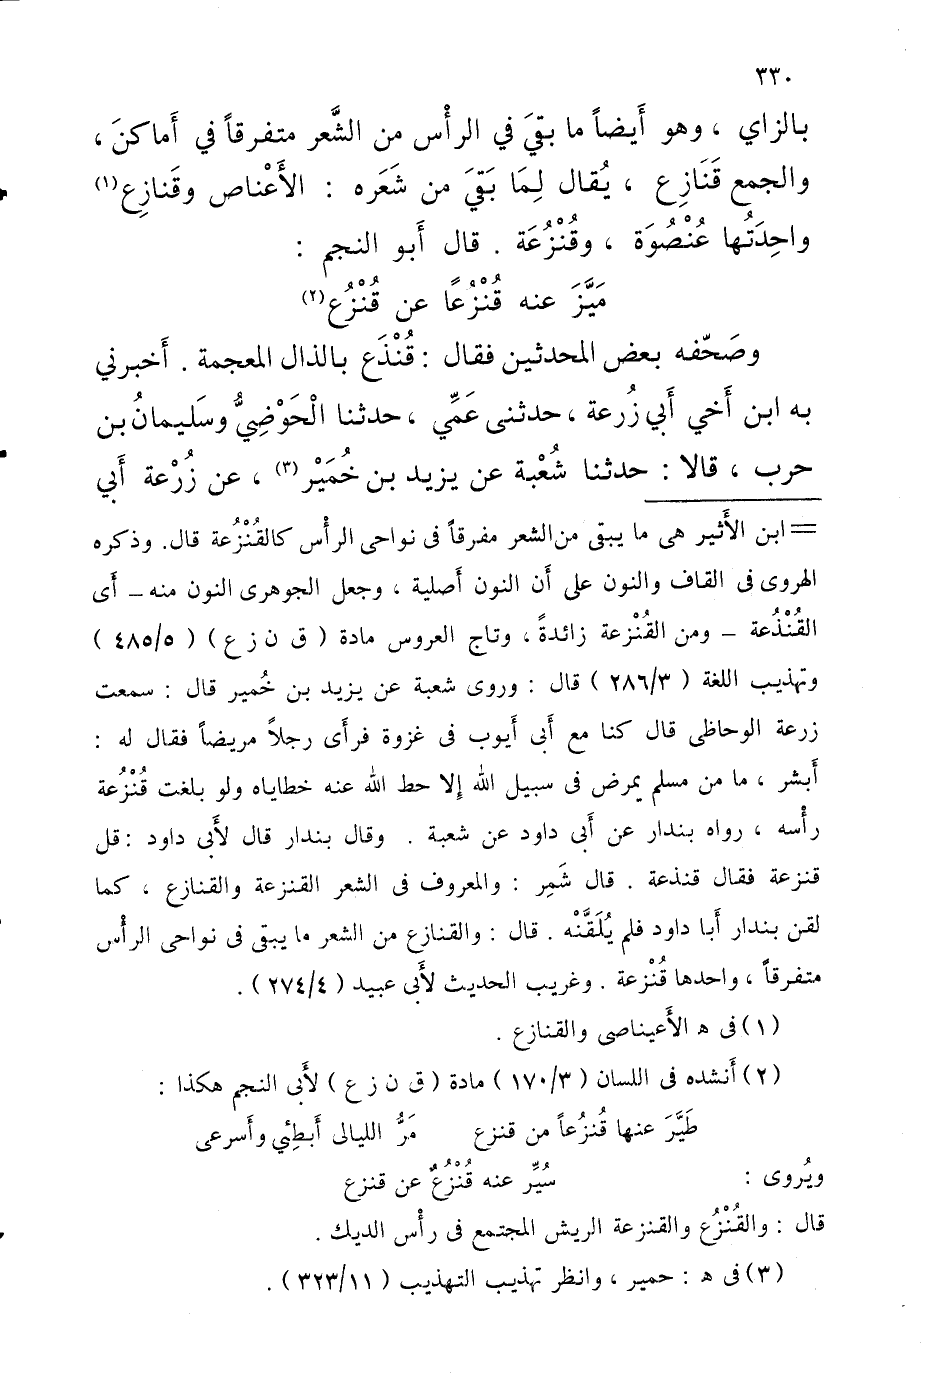 ٣٣٠
بالزاي ، وهو أَيضاً ما بقيَ في الرأْس من الشَّعر متفرقاً في أَماكنَ ،
والجمع قَنَازِع ، يُقال لِمَا بَقَيَ من شَعَره : الأَعْناص وقَنازِع(١)
واحِدَتُها عُنْصُوَة ، وقُنْزُعَة . قال أَبو النجم :
مَيَّزَ عنه قُنْزُعًا عن قُنْزُع(٢)
وصَحَّفه بعض المحدثين فقال : قُنْذَع بالذال المعجمة . أَخبرني
به ابن أَخي أَبي زُرعة ، حدثنى عَمِّي ، حدثنا الْحَوْضِيُّ وسَليمانُ بن
حرب ، قالا : حدثنا شُعْبة عن يزيد بن خُمَيْر(٣) ، عن زُرْعة أَبي
= ابن الأَثير هى ما يبقى من الشعر مفرقاً فى نواحى الرأْس كالقُنْزُعة قال. وذكره
الهروى فى القاف والنون على أَن النون أَصلية ، وجعل الجوهرى النون منه – أَى
القُنْذُعة – ومن القُنْزعة زائدةً ، وتاج العروس مادة ( ق ن ز ع ) ( ٤٨٥/٥ )
وتهذيب اللغة ( ٢٨٦/٣ ) قال : وروى شعبة عن يزيد بن خُمير قال : سمعت
زرعة الوحاظى قال كنا مع أَبى أَيوب فى غزوة فرأَى رجلاً مريضاً فقال له :
أَبشر ، ما من مسلم يمرض فى سبيل الله إلا حط الله عنه خطاياه ولو بلغت قُنْزُعة
رأْسه ، رواه بندار عن أَبى داود عن شعبة . وقال بندار قال لأَبى داود : قل
قنزعة فقال قنذعة . قال شَمِر : والمعروف فى الشعر القنزعة والقنازع ، كما
لقن بندار أَبا داود فلم يُلَقَّنْه . قال : والقنازع من الشعر ما يبقى فى نواحى الرأْس
متفرقاً ، واحدها قُنْزعة . وغريب الحديث لأَبى عبيد ( ٢٧٤/٤ ) .
(١) فى هـ الأَعيناصى والقنازع .
(٢) أَنشده فى اللسان ( ١٧٠/٣ ) مادة ( ق ن ز ع ) لأَبى النجم هكذا :
طَيَّرَ عنها قُنزُعاً من قنزع مَرُّ الليالى أَبطِئي وأَسرعى
ويُروى : سُيِّر عنه قُنْزُعٌ عن قنزع
قال : والقُنْزُع والقنزعة الريش المجتمع فى رأْس الديك .
(٣) فى هـ : حمير ، وانظر تهذيب التهذيب ( ٣٢٣/١١ ) .